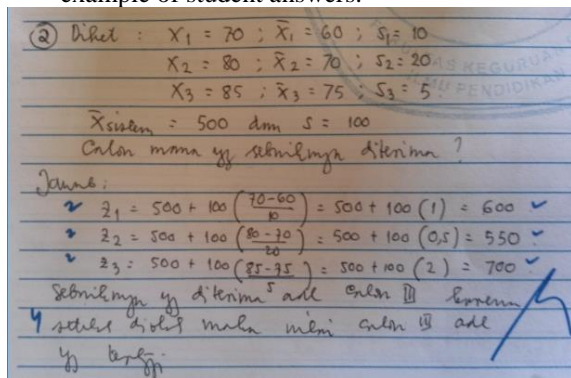 example of student answers.
② Diket : X₁ = 70 ; X̄₁ = 60 ; S₁ = 10
X₂ = 80 ; X̄₂ = 70 ; S₂ = 20
X₃ = 85 ; X̄₃ = 75 ; S₃ = 5
X̄sistem = 500 dan S = 100
Calon mana yg sebaiknya diterima ?
Jawab :
z₁ = 500 + 100 (70-60/10) = 500 + 100 (1) = 600
z₂ = 500 + 100 (80-70/20) = 500 + 100 (0,5) = 550
z₃ = 500 + 100 (85-75/5) = 500 + 100 (2) = 700
Sebaiknya yg diterima adl calon III karena
setelah diolah maka nilai calon III adl
yg